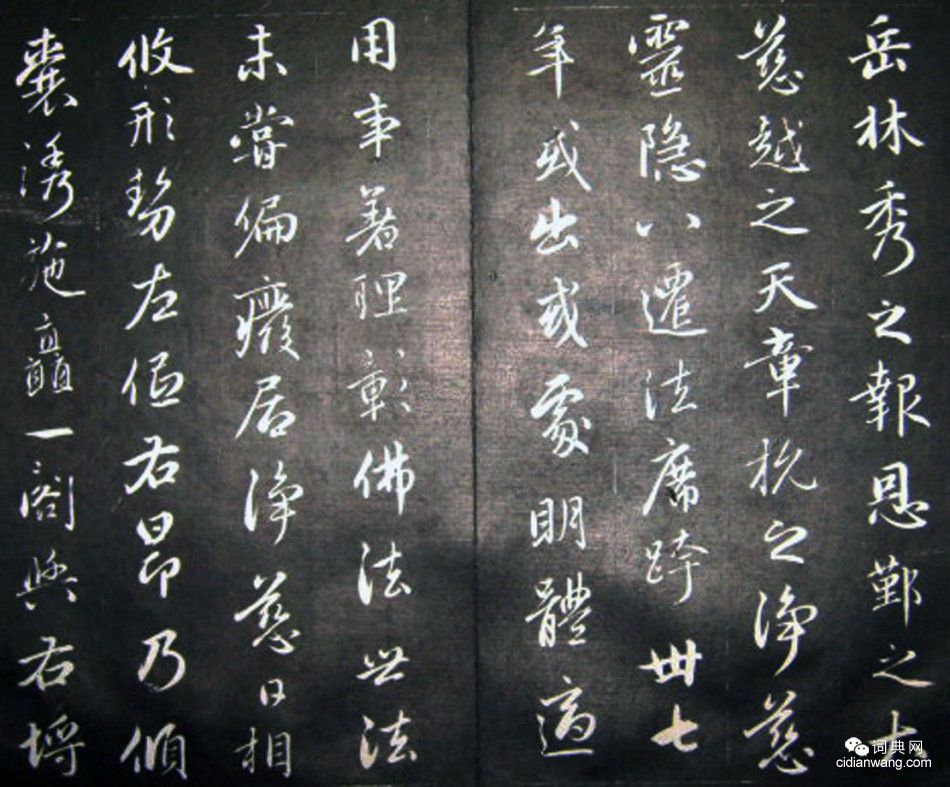 岳林秀之報恩鄞之大
慈越之天章杭之淨慈
靈隐八遷法席跨卌七
年或出或處明體適
用事著理彰佛法世法
未嘗偏癈居淨慈日相
攸形勢左低右昂乃傾
囊誘施矗一閣與右埒
词典网
cidianwang.com